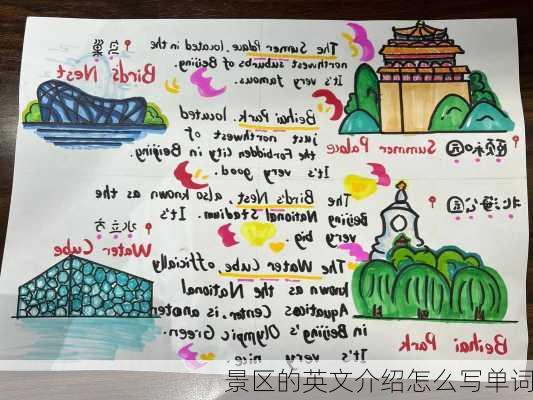 鸟巢
Bird's Nest
The Summer Palace. located in the
northwest suburbs of Beijing.
It's very famous.
颐和园
Summer Palace
Beihai Park. located
just northwest of
the Forbidden City in Beijing
It's very good.
The Bird's Nest. also known as the
Beijing National Stadium. It's
very big.
北海公园
Beihai Park
水立方
Water Cube
The Water Cube. officially
known as the National
Aquatics Center, is
in Beijing's Olympic Green.
It's very nice.
景区的英文介绍怎么写单词